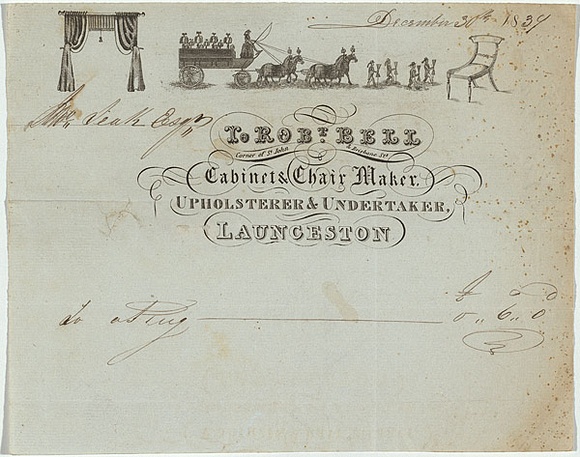 December 30th 1834
Leak Esqr
To ROBT. BELL
Corner of St. John & Brisbane Sts.
Cabinet & Chair Maker.
UPHOLSTERER & UNDERTAKER,
LAUNCESTON
£ s d
To a Rug 0 " 6 " 0